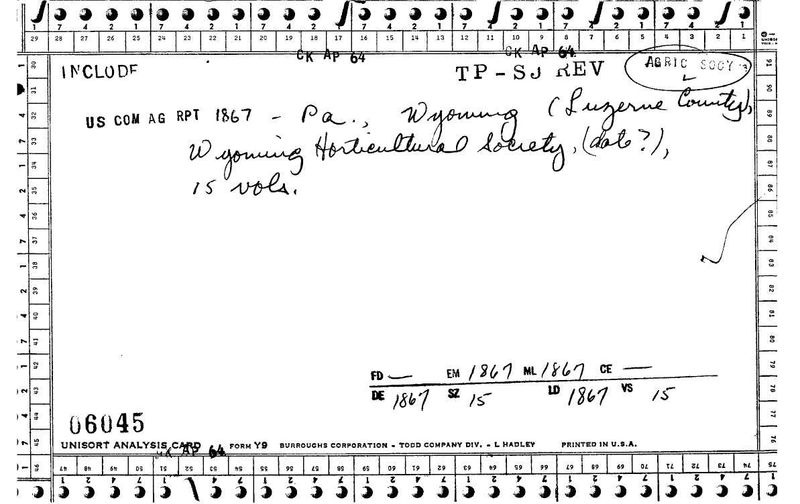 CK AP 64 CK AP 64
INCLUDE TP-SJ REV AGRIC SOCY
US COM AG RPT 1867 - Pa., Wyoming (Luzerne County),
Wyoming Horticultural Society, (date?),
15 vols.
FD — EM 1867 ML 1867 CE —
DE 1867 SZ 15 LD 1867 VS 15
06045
UNISORT ANALYSIS CARD FORM Y9 BURROUGHS CORPORATION - TODD COMPANY DIV. - L HADLEY PRINTED IN U.S.A.
CK AP 64